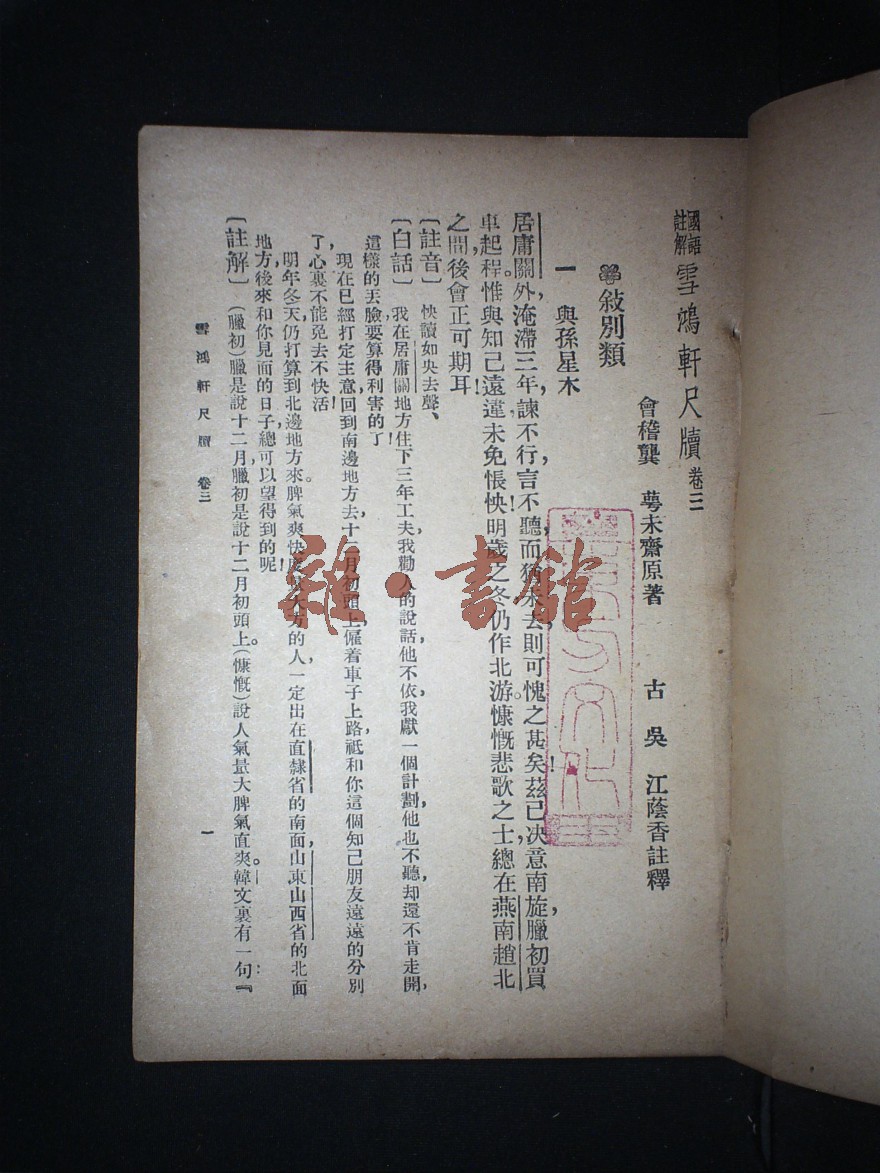 國語註解 雪鴻軒尺牘 卷三
會稽龔 萼未齋原著 古吳 江蔭香註釋
敍別類
一 與孫星木
居庸關外,淹滯三年,諫不行,言不聽,而猶未去,則可愧之甚矣!茲已决意南旋,臘初買
車起程。惟與知己遠違,未免悵怏!明歲之冬,仍作北游。慷慨悲歌之士,總在燕南趙北
之間,後會正可期耳!
〔註音〕 怏讀如央去聲、
〔白話〕 我在居庸關地方住下三年工夫,我勸人的說話,他不依,我獻一個計劃,他也不聽,却還不肯走開,
這樣的丟臉,要算得利害的了!
現在已經打定主意,回到南邊地方去,十二月初頭上,僱着車子上路,祇和你這個知己朋友遠遠的分別
了,心裏不能免去不快活!
明年冬天,仍打算到北邊地方來。脾氣爽快度量大方的人,一定出在直隸省的南面,山東山西省的北面
地方,後來和你見面的日子,總可以望得到的呢!
〔註解〕 (臘初)臘是說十二月,臘初是說十二月初頭上。(慷慨)說人氣量大脾氣直爽。韓文裏有一句:『
雪鴻軒尺牘 卷三 一
雜·書館